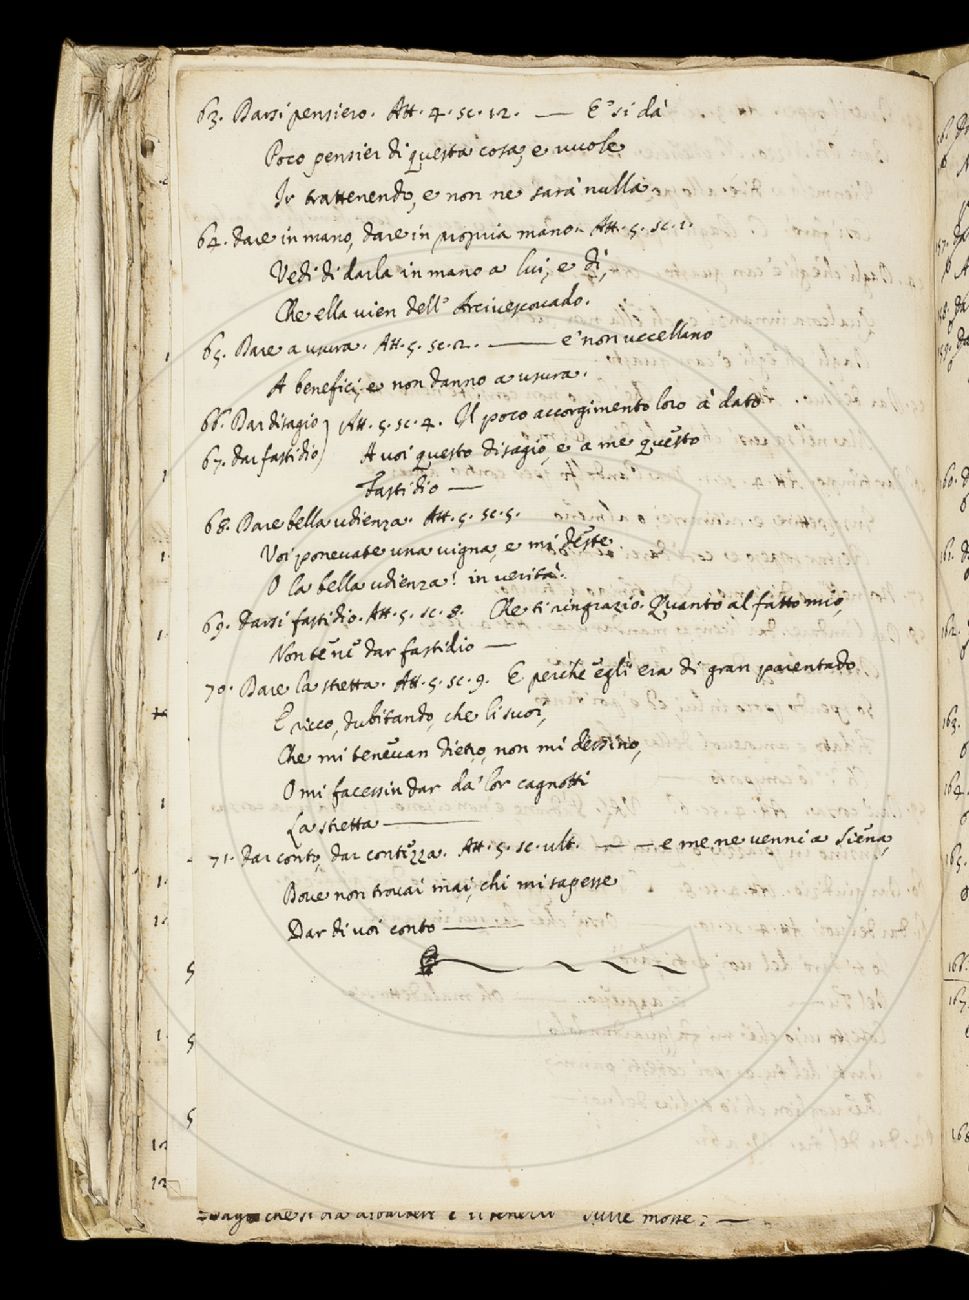 63. Darsi pensiero. Att. 4. sc. 12. — E' si dà
Poco pensier di questa cosa, e vuole
Ir trattenendo, e non ne sarà nulla.
64. dare in mano, dare in propria mano. Att. 5. sc. 1.
Vedi di darla in mano a lui, e dì,
Che ella vien dell' Arcivescovado.
65. Dare a usura. Att. 5. sc. 2. — e' non uccellano
A benefici, e non danno a usura.
66. Dar disagio) Att. 5. sc. 4. Il poco accorgimento loro à dato
67. dar fastidio) A voi questo disagio, e a me questo
Fastidio —
68. Dare bella udienza. Att. 5. sc. 5.
Voi ponevate una vigna, e mi deste
O la bella udienza! in verità.
69. Darsi fastidio. Att. 5. sc. 8. Che ti ringrazio. Quanto al fatto mio,
Non te ne dar fastidio —
70. Dare la stretta. Att. 5. sc. 9. E perchè egli era di gran parentado
E ricco, dubitando, che li suoi,
Che mi tenevan dietro, non mi dessino,
O mi facessin dar da' lor cagnotti
La stretta —
71. dar conto, dar contezza. Att. 5. sc. ult. — — e me ne venni a Siena,
Dove non trovai mai, chi mi sapesse
Dar di voi conto —